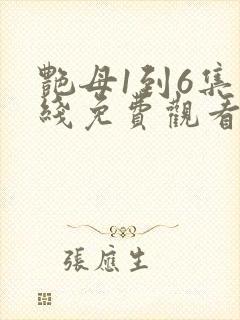 艷母1到6集
綫免費觀看
張應生